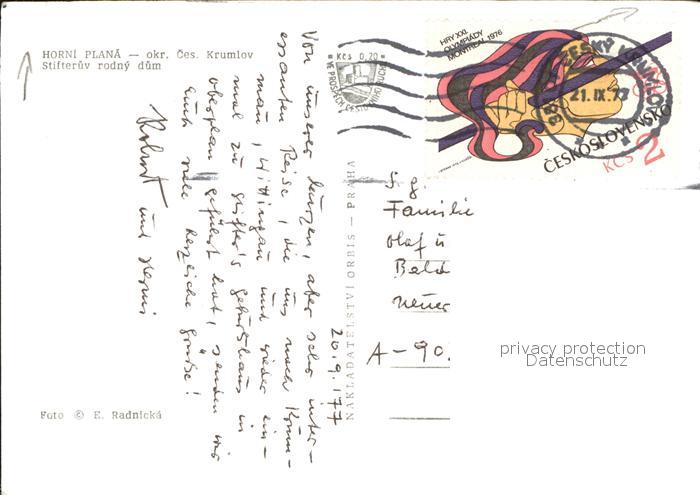 HORNÍ PLANÁ — okr. Čes. Krumlov
Stifterův rodný dům
Kčs 0,20
HRY XXI.
OLYMPIÁDY
MONTREAL 1976
ČESKÝ KRUMLOV
21.IX.77
ČESKOSLOVENSKO
KČS 2
20.9.77
Von unserer kurzen, aber sehr inter-
essanten Reise, die uns nach Krum-
mau, Wittingau und wieder ein-
mal zu Stifter's Geburtshaus in
Oberplan geführt hat, senden wir
Euch viele herzliche Grüße!
Robert und
NAKLADATELSTVÍ ORBIS — PRAHA
Familie
Olaf u
A-90.
privacy protection
Datenschutz
Foto © E. Radnická